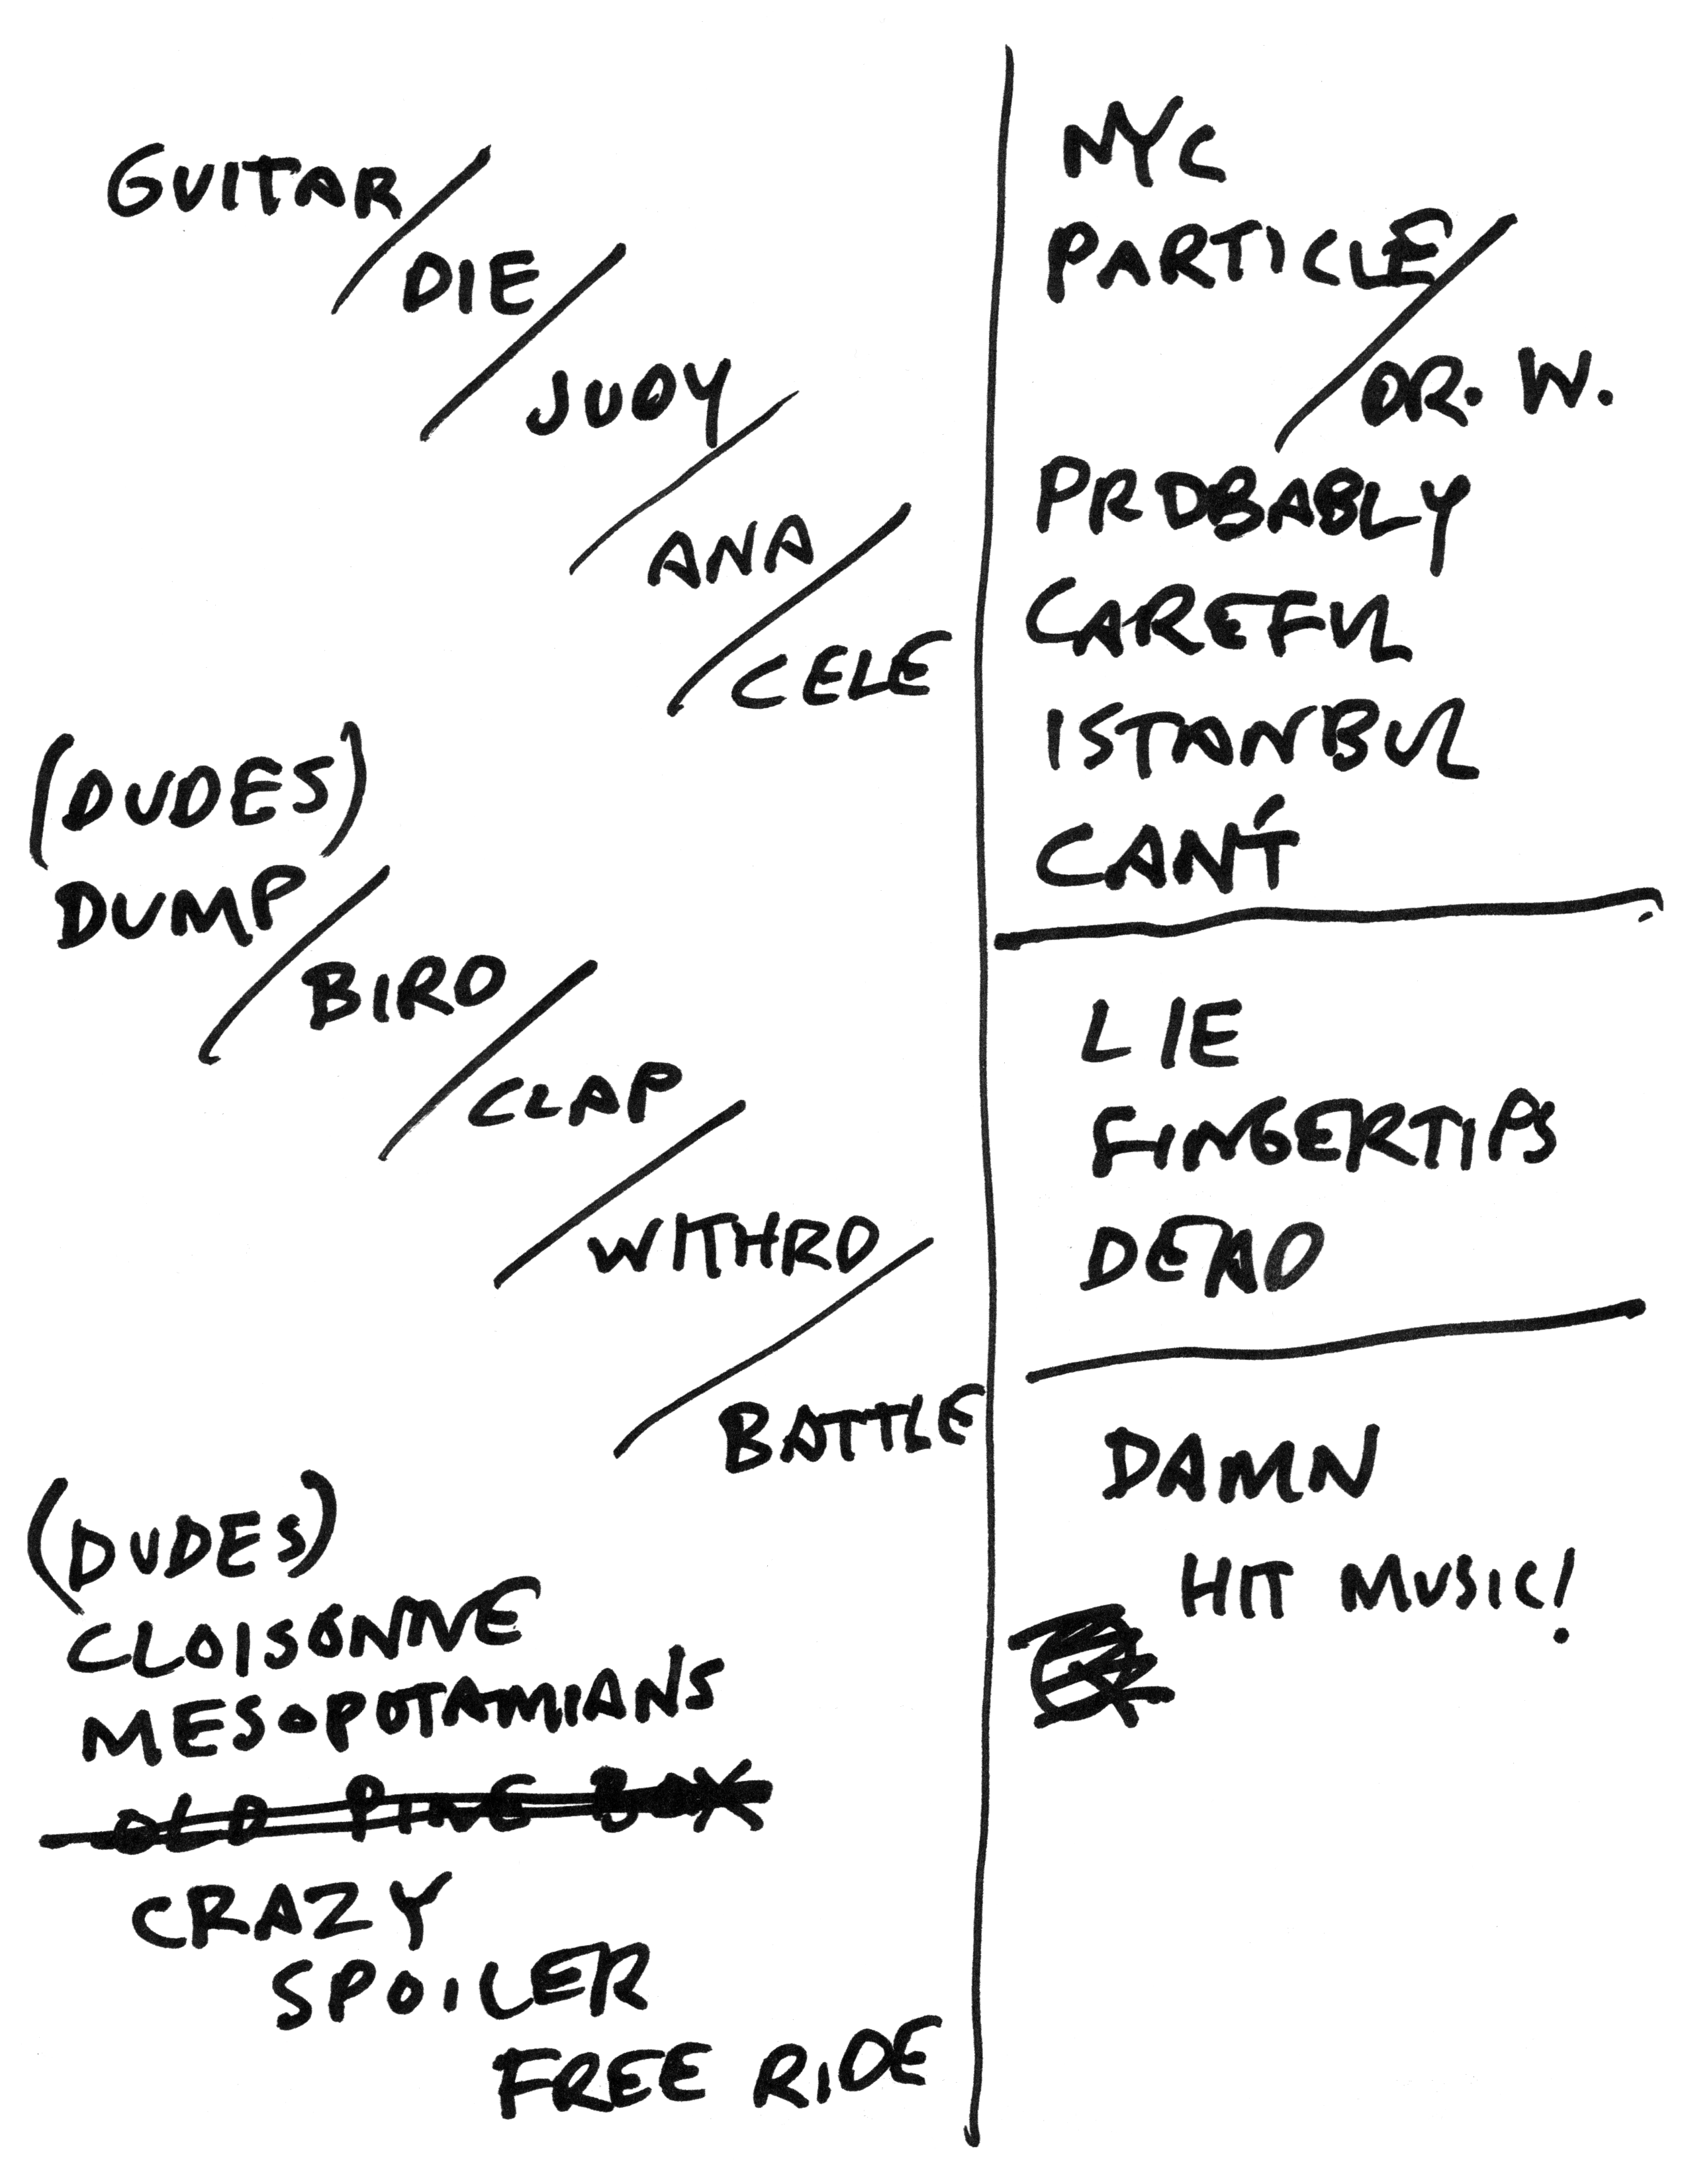 GUITAR/
DIE/
JUDY/
ANA/
CELE
(DUDES)
DUMP/
BIRD/
CLAP/
WITHRO/
BATTLE
(DUDES)
CLOISONNE
MESOPOTAMIANS
OLD PINE BOX
CRAZY
SPOILER
FREE RIDE
NYC
PARTICLE/
DR. W.
PROBABLY
CAREFUL
ISTANBUL
CAN'T
LIE
FINGERTIPS
DEAD
DAMN
HIT MUSIC!